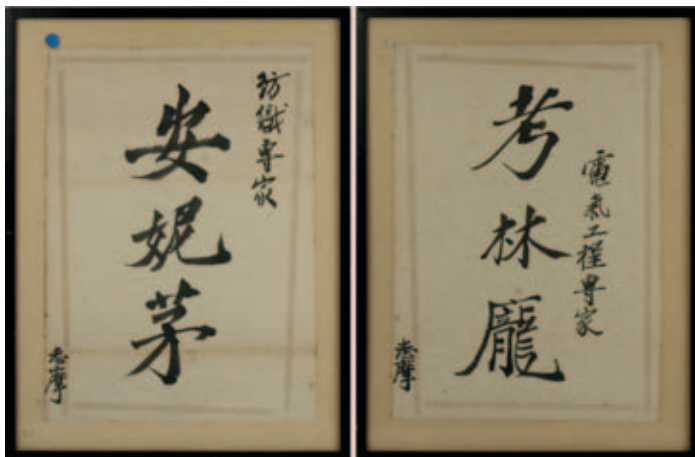 紡織專家
安妮茅
志摩
電氣工程專家
考林龐
志摩